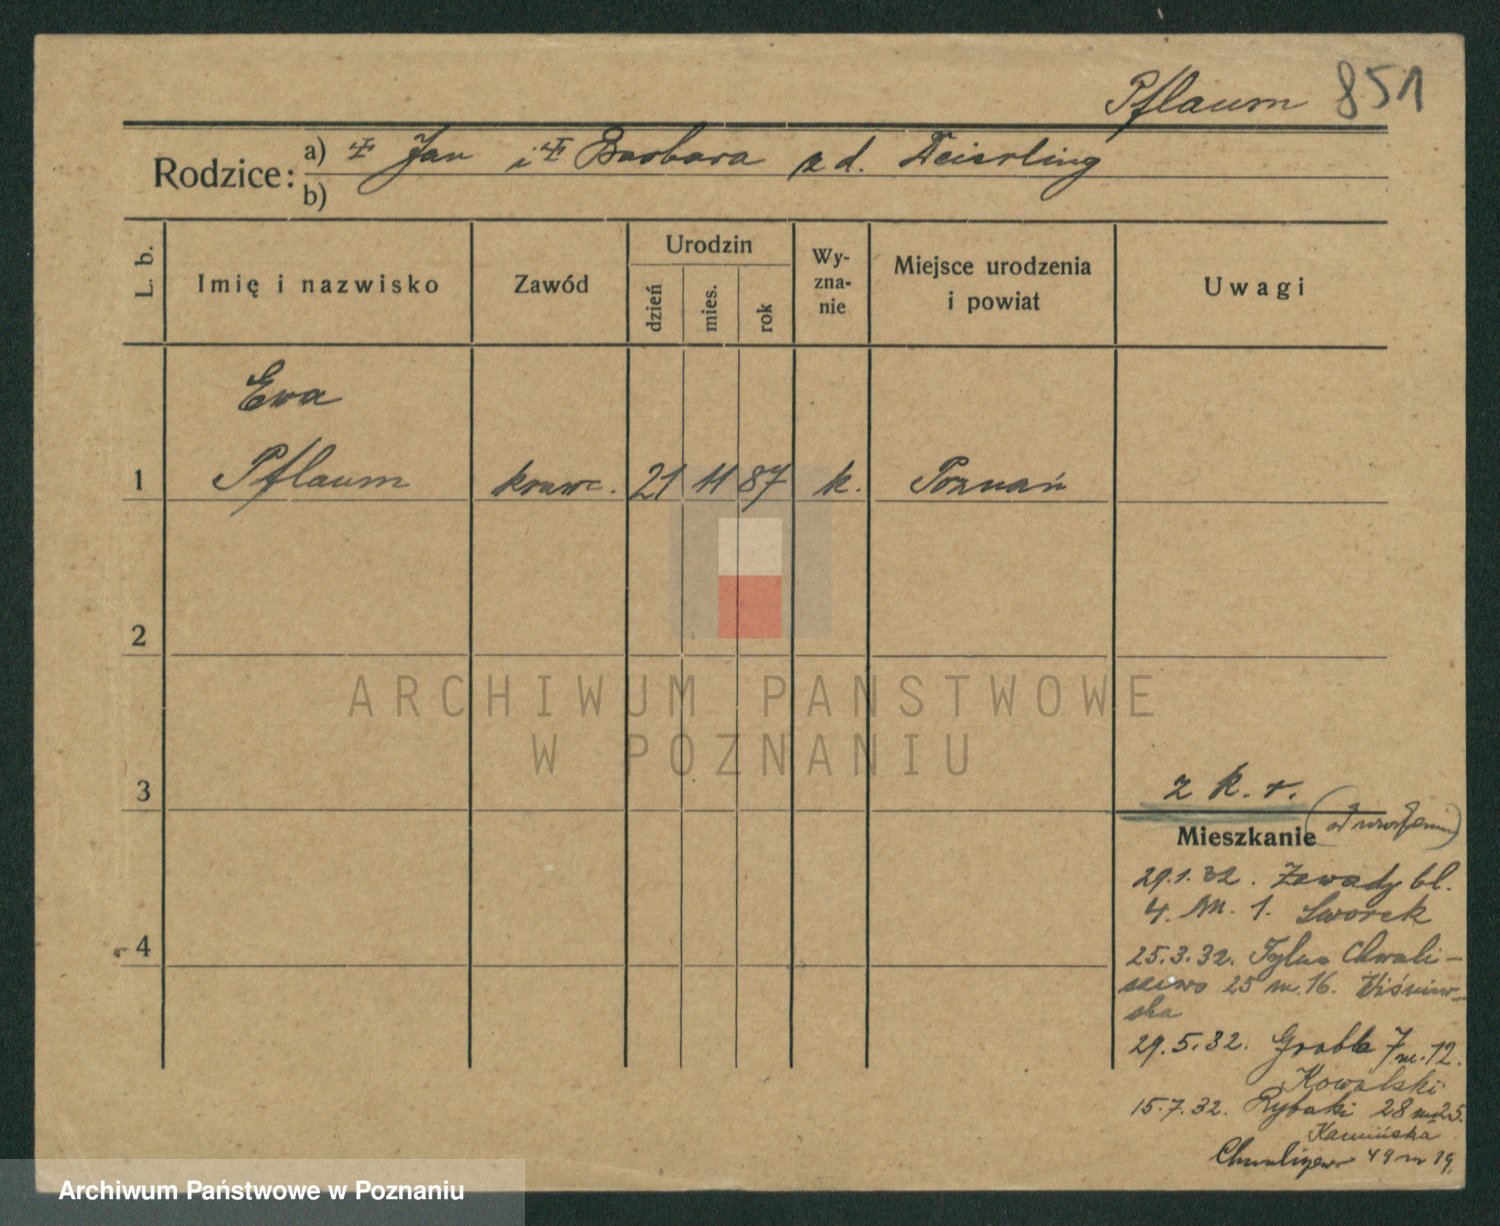 Pflaum 851
Rodzice: a) Jan i Barbara z d. Teisrling
b)
L. b.
Imię i nazwisko
Zawód
Urodzin
dzień
mies.
rok
Wy-
zna-
nie
Miejsce urodzenia
i powiat
Uwagi
Ewa
1 Pflaum krawc. 21 11 87 k. Poznań
2
ARCHIWUM PAŃSTWOWE
W POZNANIU
3
z k. r.
Mieszkanie (od urodzenia)
29.1.32. Zawady bl.
4. m. 1. Sworek
25.3.32. Tylna Chwali-
szewo 25 m. 16. Wiśniew-
ska
4
29.5.32. Grobla 7 m. 12.
Kowalski
15.7.32. Rybaki 28 m 25.
Kamińska
Chwaliszewo 49 m 19.
Archiwum Państwowe w Poznaniu